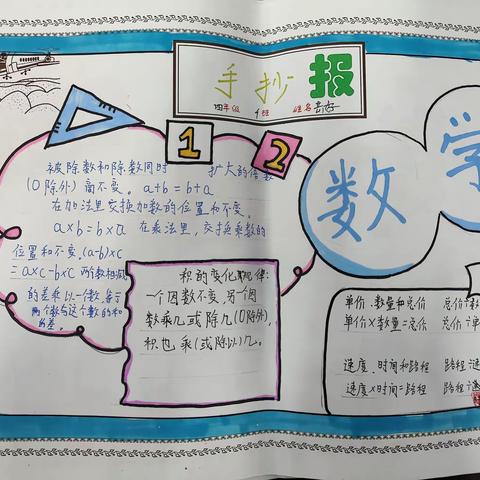 手抄报
四年级 1班 姓名
1
2
数学
被除数和除数同时 扩大的倍数
(0除外)商不变。a+b=b+a
在加法里交换加数的位置和不变。
a×b=b×a 在乘法里,交换乘数的
位置和不变.(a-b)×c
=a×c-b×c 两个数相减
的差乘以一个数,等于
两个数与这个数的和
的差。
积的变化规律:
一个因数不变,另一个因
数乘几或除几(0除外),
积也乘(或除以)几。
单价.数量和总价 总价÷数
单价×数量=总价 总价÷单
速度.时间和路程 路程÷速
速度×时间=路程 路程÷速